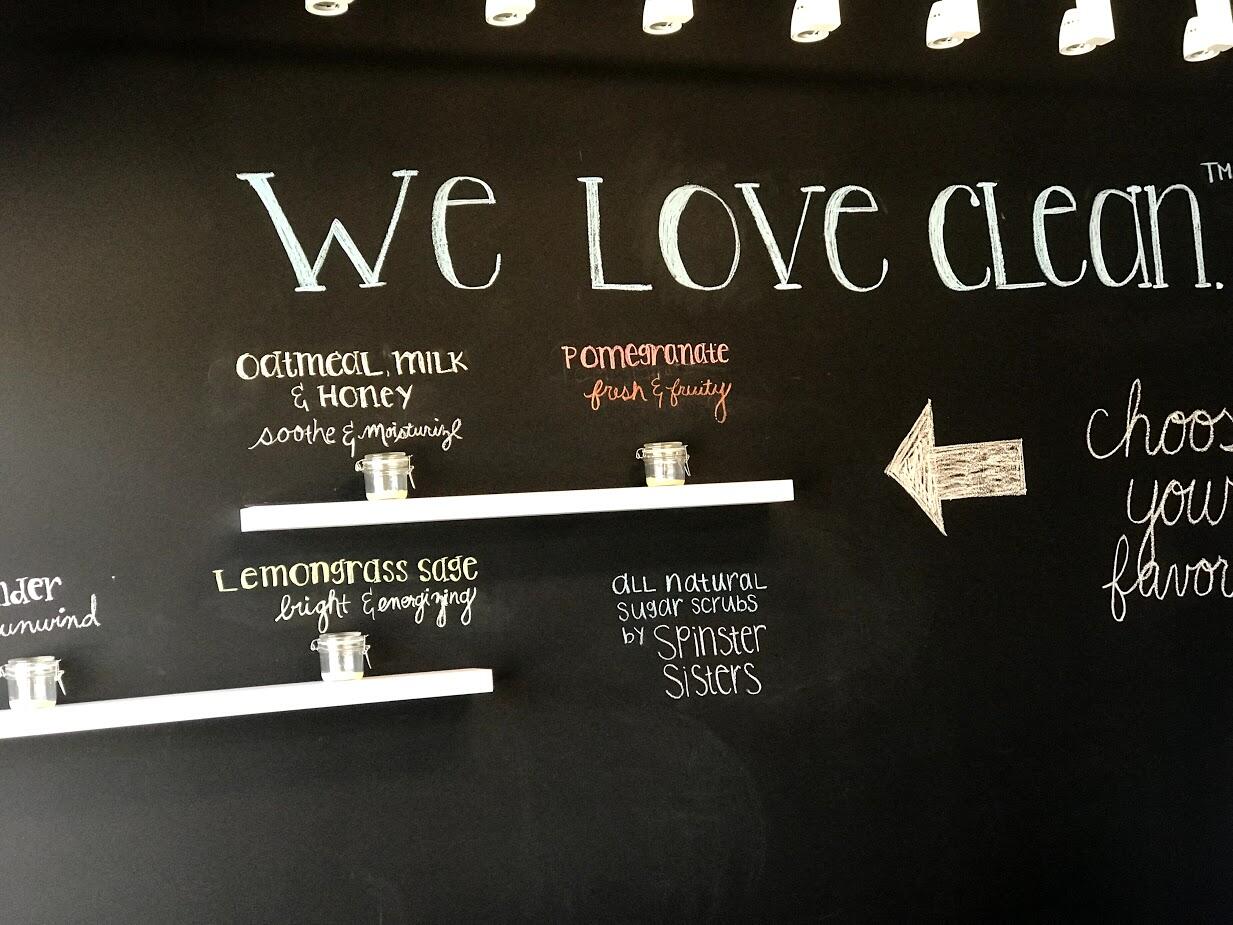 We Love clean.™
Oatmeal, Milk
& Honey
soothe & moisturize
Pomegranate
fresh & fruity
choos
your
favor
lder
unwind
Lemongrass sage
bright & energizing
all natural
sugar scrubs
by Spinster
Sisters